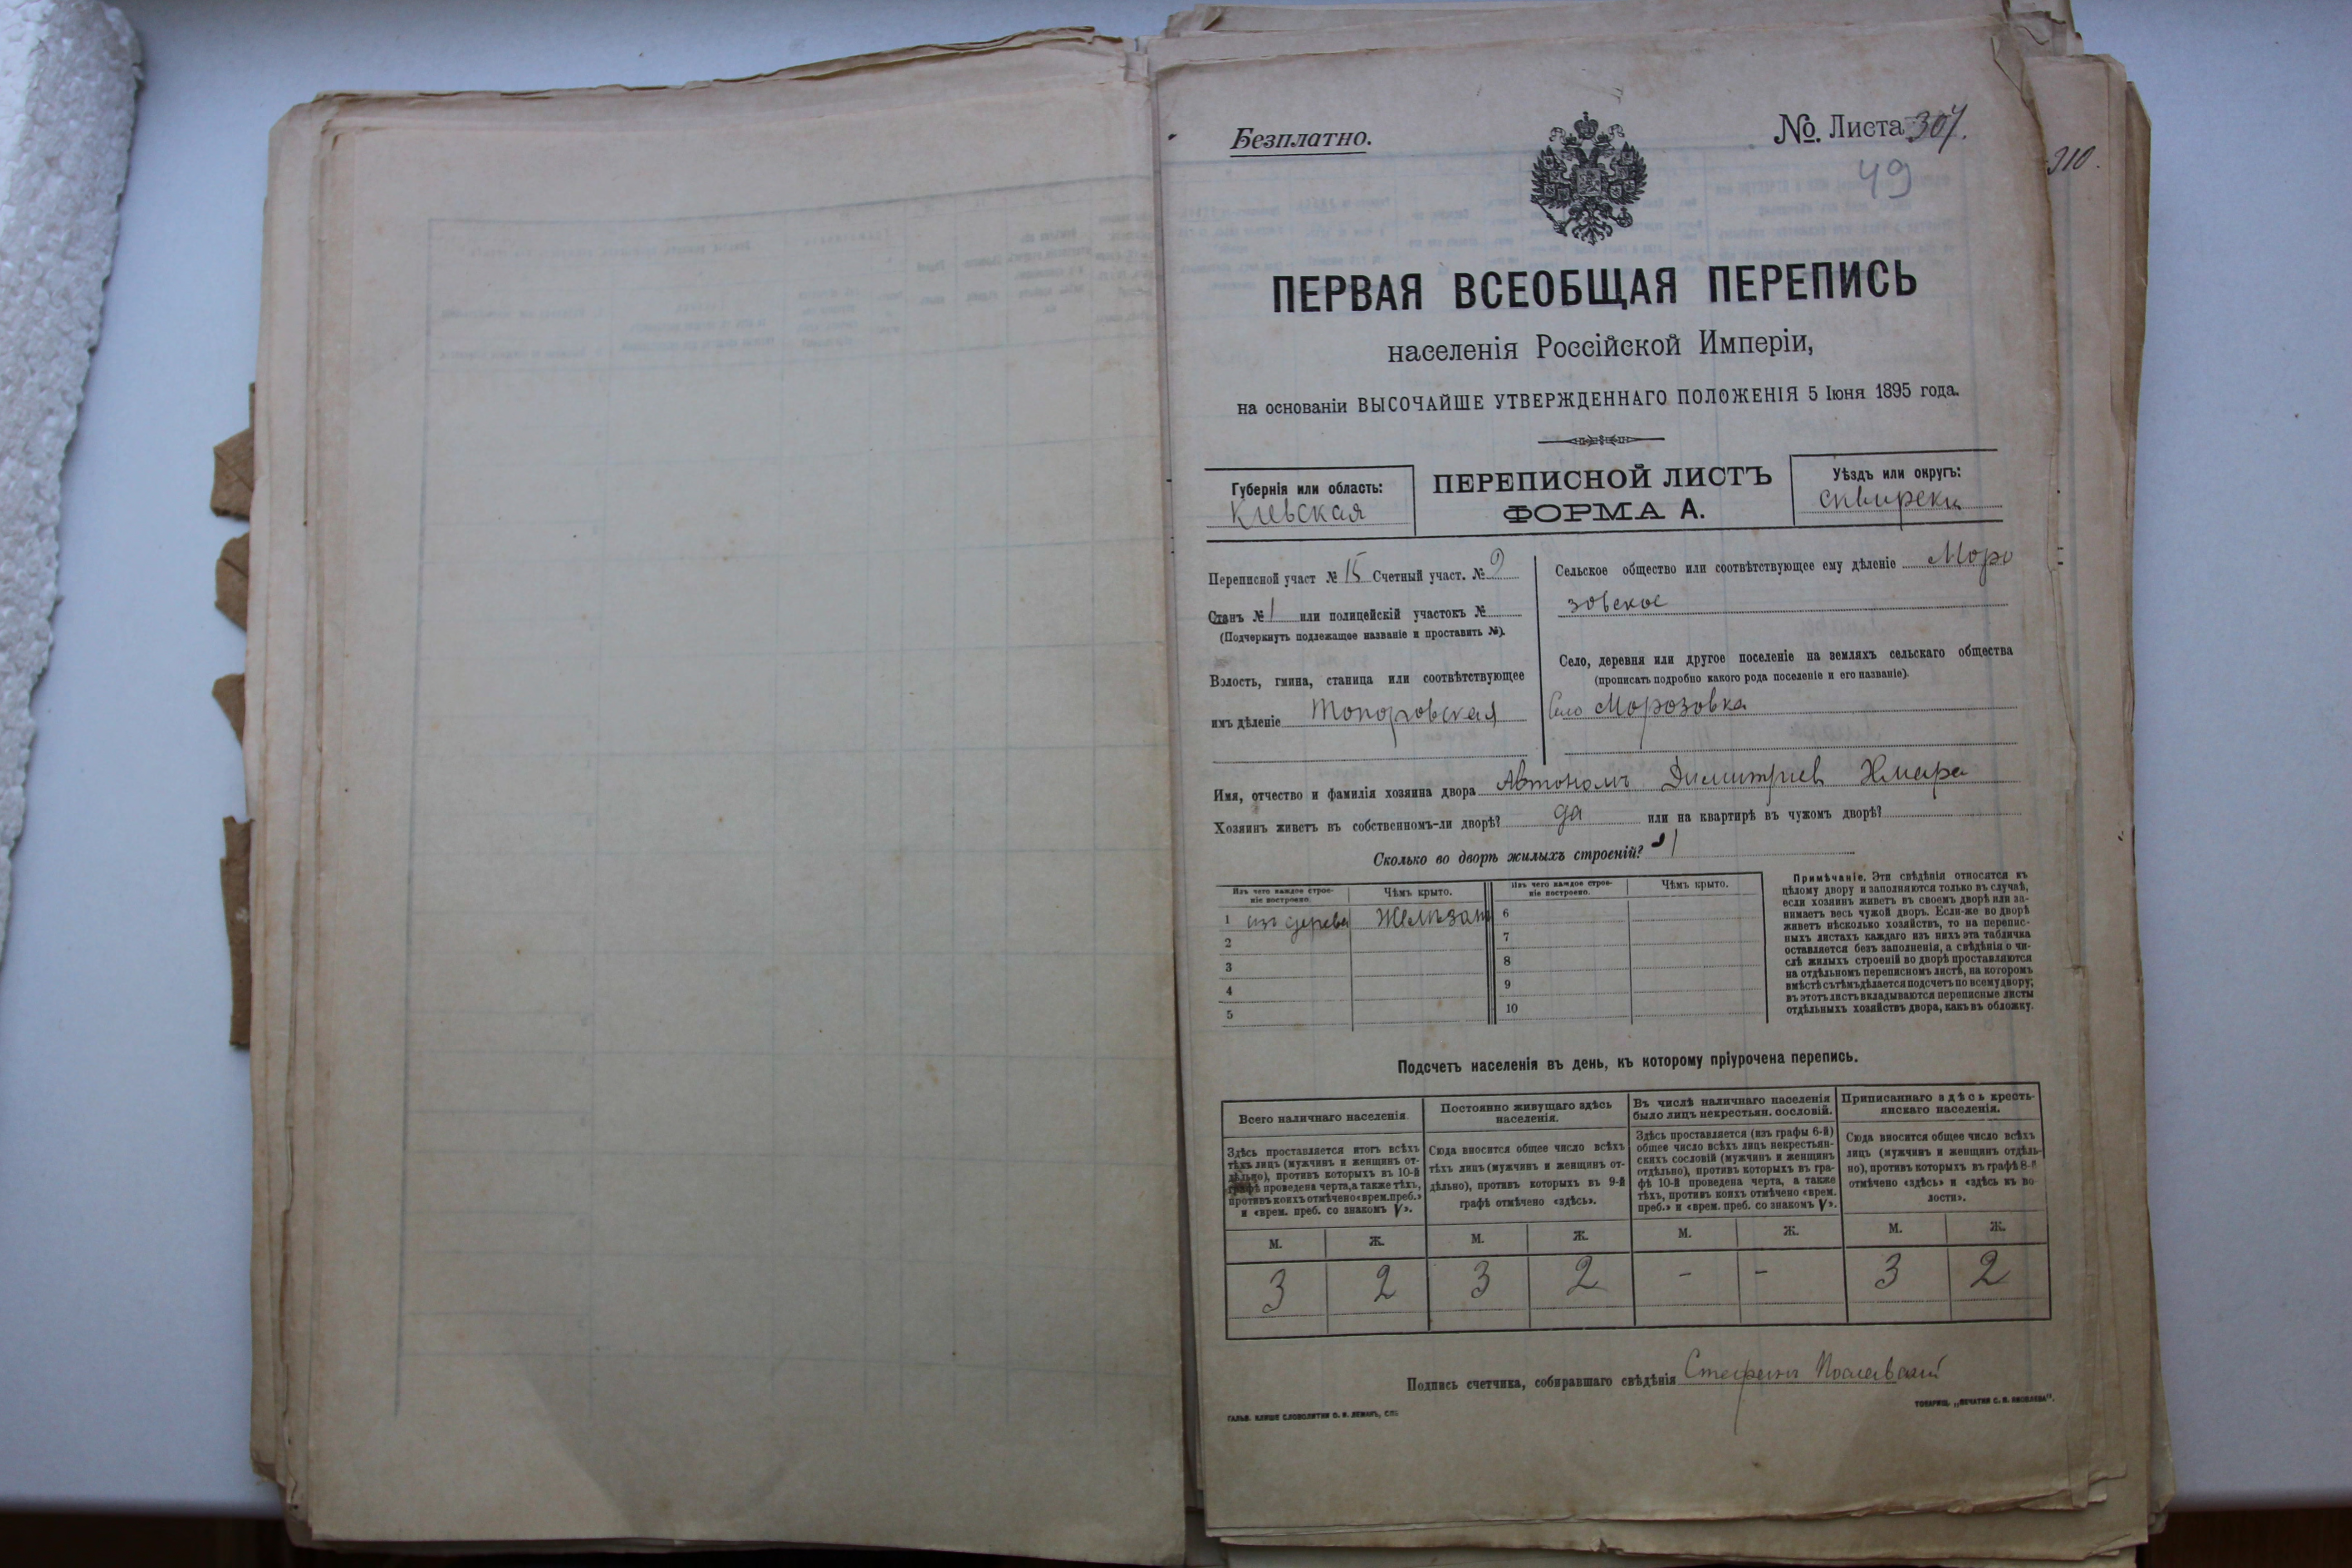 Безплатно.
№ Листа 307.
49
310.
ПЕРВАЯ ВСЕОБЩАЯ ПЕРЕПИСЬ
населенія Россійской Имперіи,
на основаніи ВЫСОЧАЙШЕ УТВЕРЖДЕННАГО ПОЛОЖЕНІЯ 5 Іюня 1895 года.
Губернія или область:
Кіевская
ПЕРЕПИСНОЙ ЛИСТЪ
ФОРМА А.
Уѣздъ или округъ:
сквирски
Переписной участ № 15 Счетный участ. № 9
Станъ № 1 или полицейскій участокъ №
(Подчеркнуть подлежащее названіе и проставить №).
Волость, гмина, станица или соотвѣтствующее
имъ дѣленіе Топоровская
Сельское общество или соотвѣтствующее ему дѣленіе Моро
зовское
Село, деревня или другое поселеніе на земляхъ сельскаго общества
(прописать подробно какого рода поселеніе и его названіе).
Село Морозовка
Имя, отчество и фамилія хозяина двора Автономъ Димитріев Хмара
Хозяинъ живетъ въ собственномъ-ли дворѣ? да или на квартирѣ въ чужомъ дворѣ?
Сколько во дворѣ жилыхъ строеній? 1
Изъ чего каждое строе-
ніе построено.
Чѣмъ крыто.
Изъ чего каждое строе-
ніе построено.
Чѣмъ крыто.
1 изъ дерева 6
2 7
3 8
4 9
5 10
Примѣчаніе. Эти свѣдѣнія относятся къ
цѣлому двору и заполняются только въ случаѣ,
если хозяинъ живетъ въ своемъ дворѣ или за-
нимаетъ весь чужой дворъ. Если-же во дворѣ
живетъ нѣсколько хозяйствъ, то на перепис-
ныхъ листахъ каждаго изъ нихъ эта табличка
оставляется безъ заполненія, а свѣдѣнія о чи-
слѣ жилыхъ строеній во дворѣ проставляются
на отдѣльномъ переписномъ листѣ, на которомъ
вмѣстѣ съ тѣмъ дѣлается подсчетъ по всему двору;
въ этотъ листъ вкладываются переписные листы
отдѣльныхъ хозяйствъ двора, какъ въ обложку.
Подсчетъ населенія въ день, къ которому пріурочена перепись.
Всего наличнаго населенія.
Здѣсь проставляется итогъ всѣхъ
тѣхъ лицъ (мужчинъ и женщинъ от-
дѣльно), противъ которыхъ въ 10-й
графѣ проведена черта, а также тѣхъ,
противъ коихъ отмѣчено «врем. преб.»
и «врем. преб. со знакомъ V».
Постоянно живущаго здѣсь
населенія.
Сюда вносится общее число всѣхъ
тѣхъ лицъ (мужчинъ и женщинъ от-
дѣльно), противъ которыхъ въ 9-й
графѣ отмѣчено «здѣсь».
Въ числѣ наличнаго населенія
было лицъ некрестьян. сословій.
Здѣсь проставляется (изъ графы 6-й)
общее число всѣхъ лицъ некрестьян-
скихъ сословій (мужчинъ и женщинъ
отдѣльно), противъ которыхъ въ гра-
фѣ 10-й проведена черта, а также
тѣхъ, противъ коихъ отмѣчено «врем.
преб.» и «врем. преб. со знакомъ V».
Приписаннаго здѣсь кресть-
янскаго населенія.
Сюда вносится общее число всѣхъ
лицъ (мужчинъ и женщинъ отдѣль-
но), противъ которыхъ въ графѣ 8-й
отмѣчено «здѣсь» и «здѣсь къ во
лости».
М. Ж. М. Ж. М. Ж. М. Ж.
3 2 3 2 - - 3 2
Подпись счетчика, собиравшаго свѣдѣнія Стефанъ
ГАЛЬВ. КЛИШЕ СЛОВОЛИТНИ О. И. ЛЕМАНЪ, СПБ
ТОВАРИЩ. „ПЕЧАТНЯ С. П. ЯКОВЛЕВА".